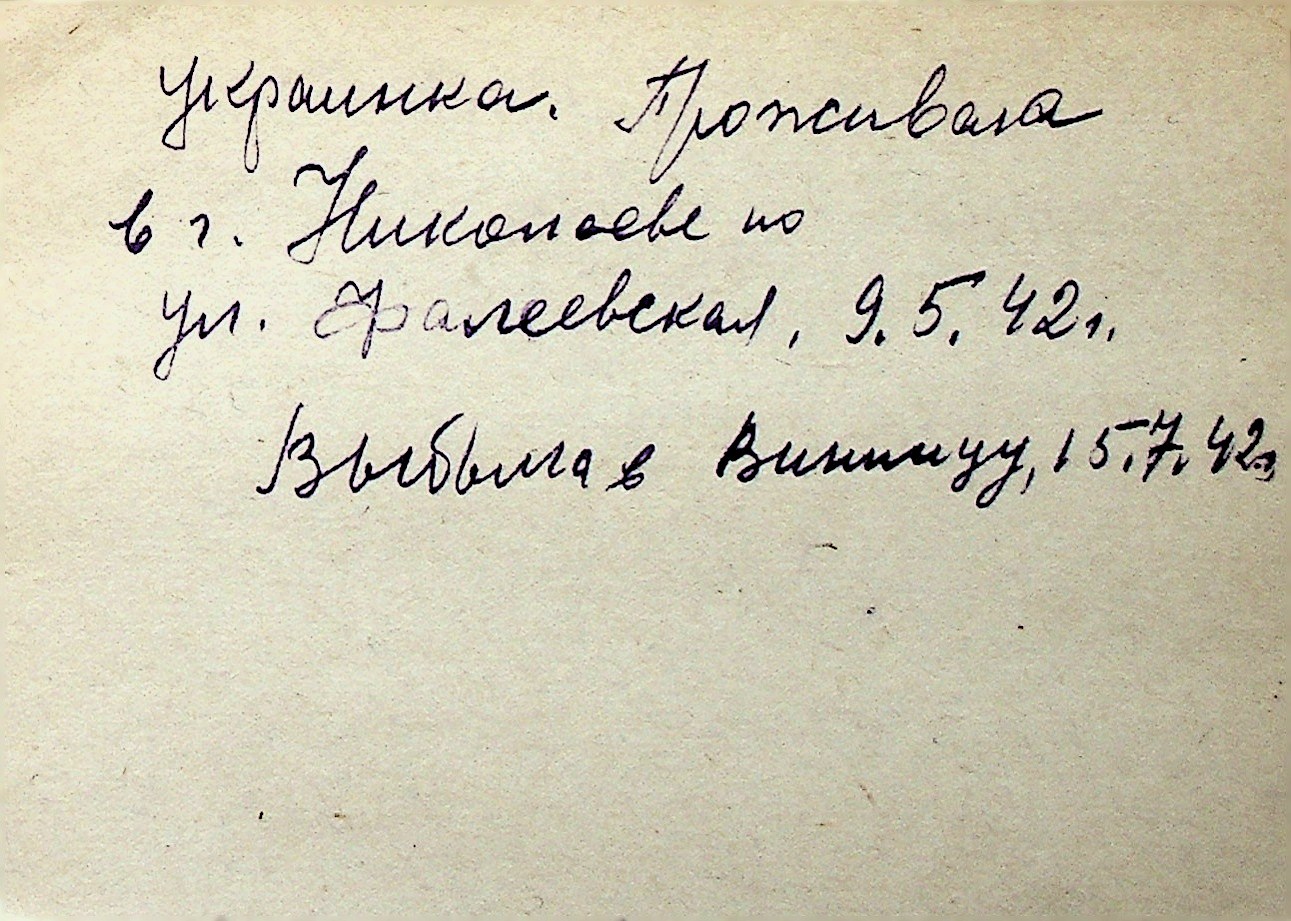 Украинка. Проживала
в г. Николаеве по
ул. Фалеевская, 9.5.42г.
Выбыла в Винницу, 15.7.42г.